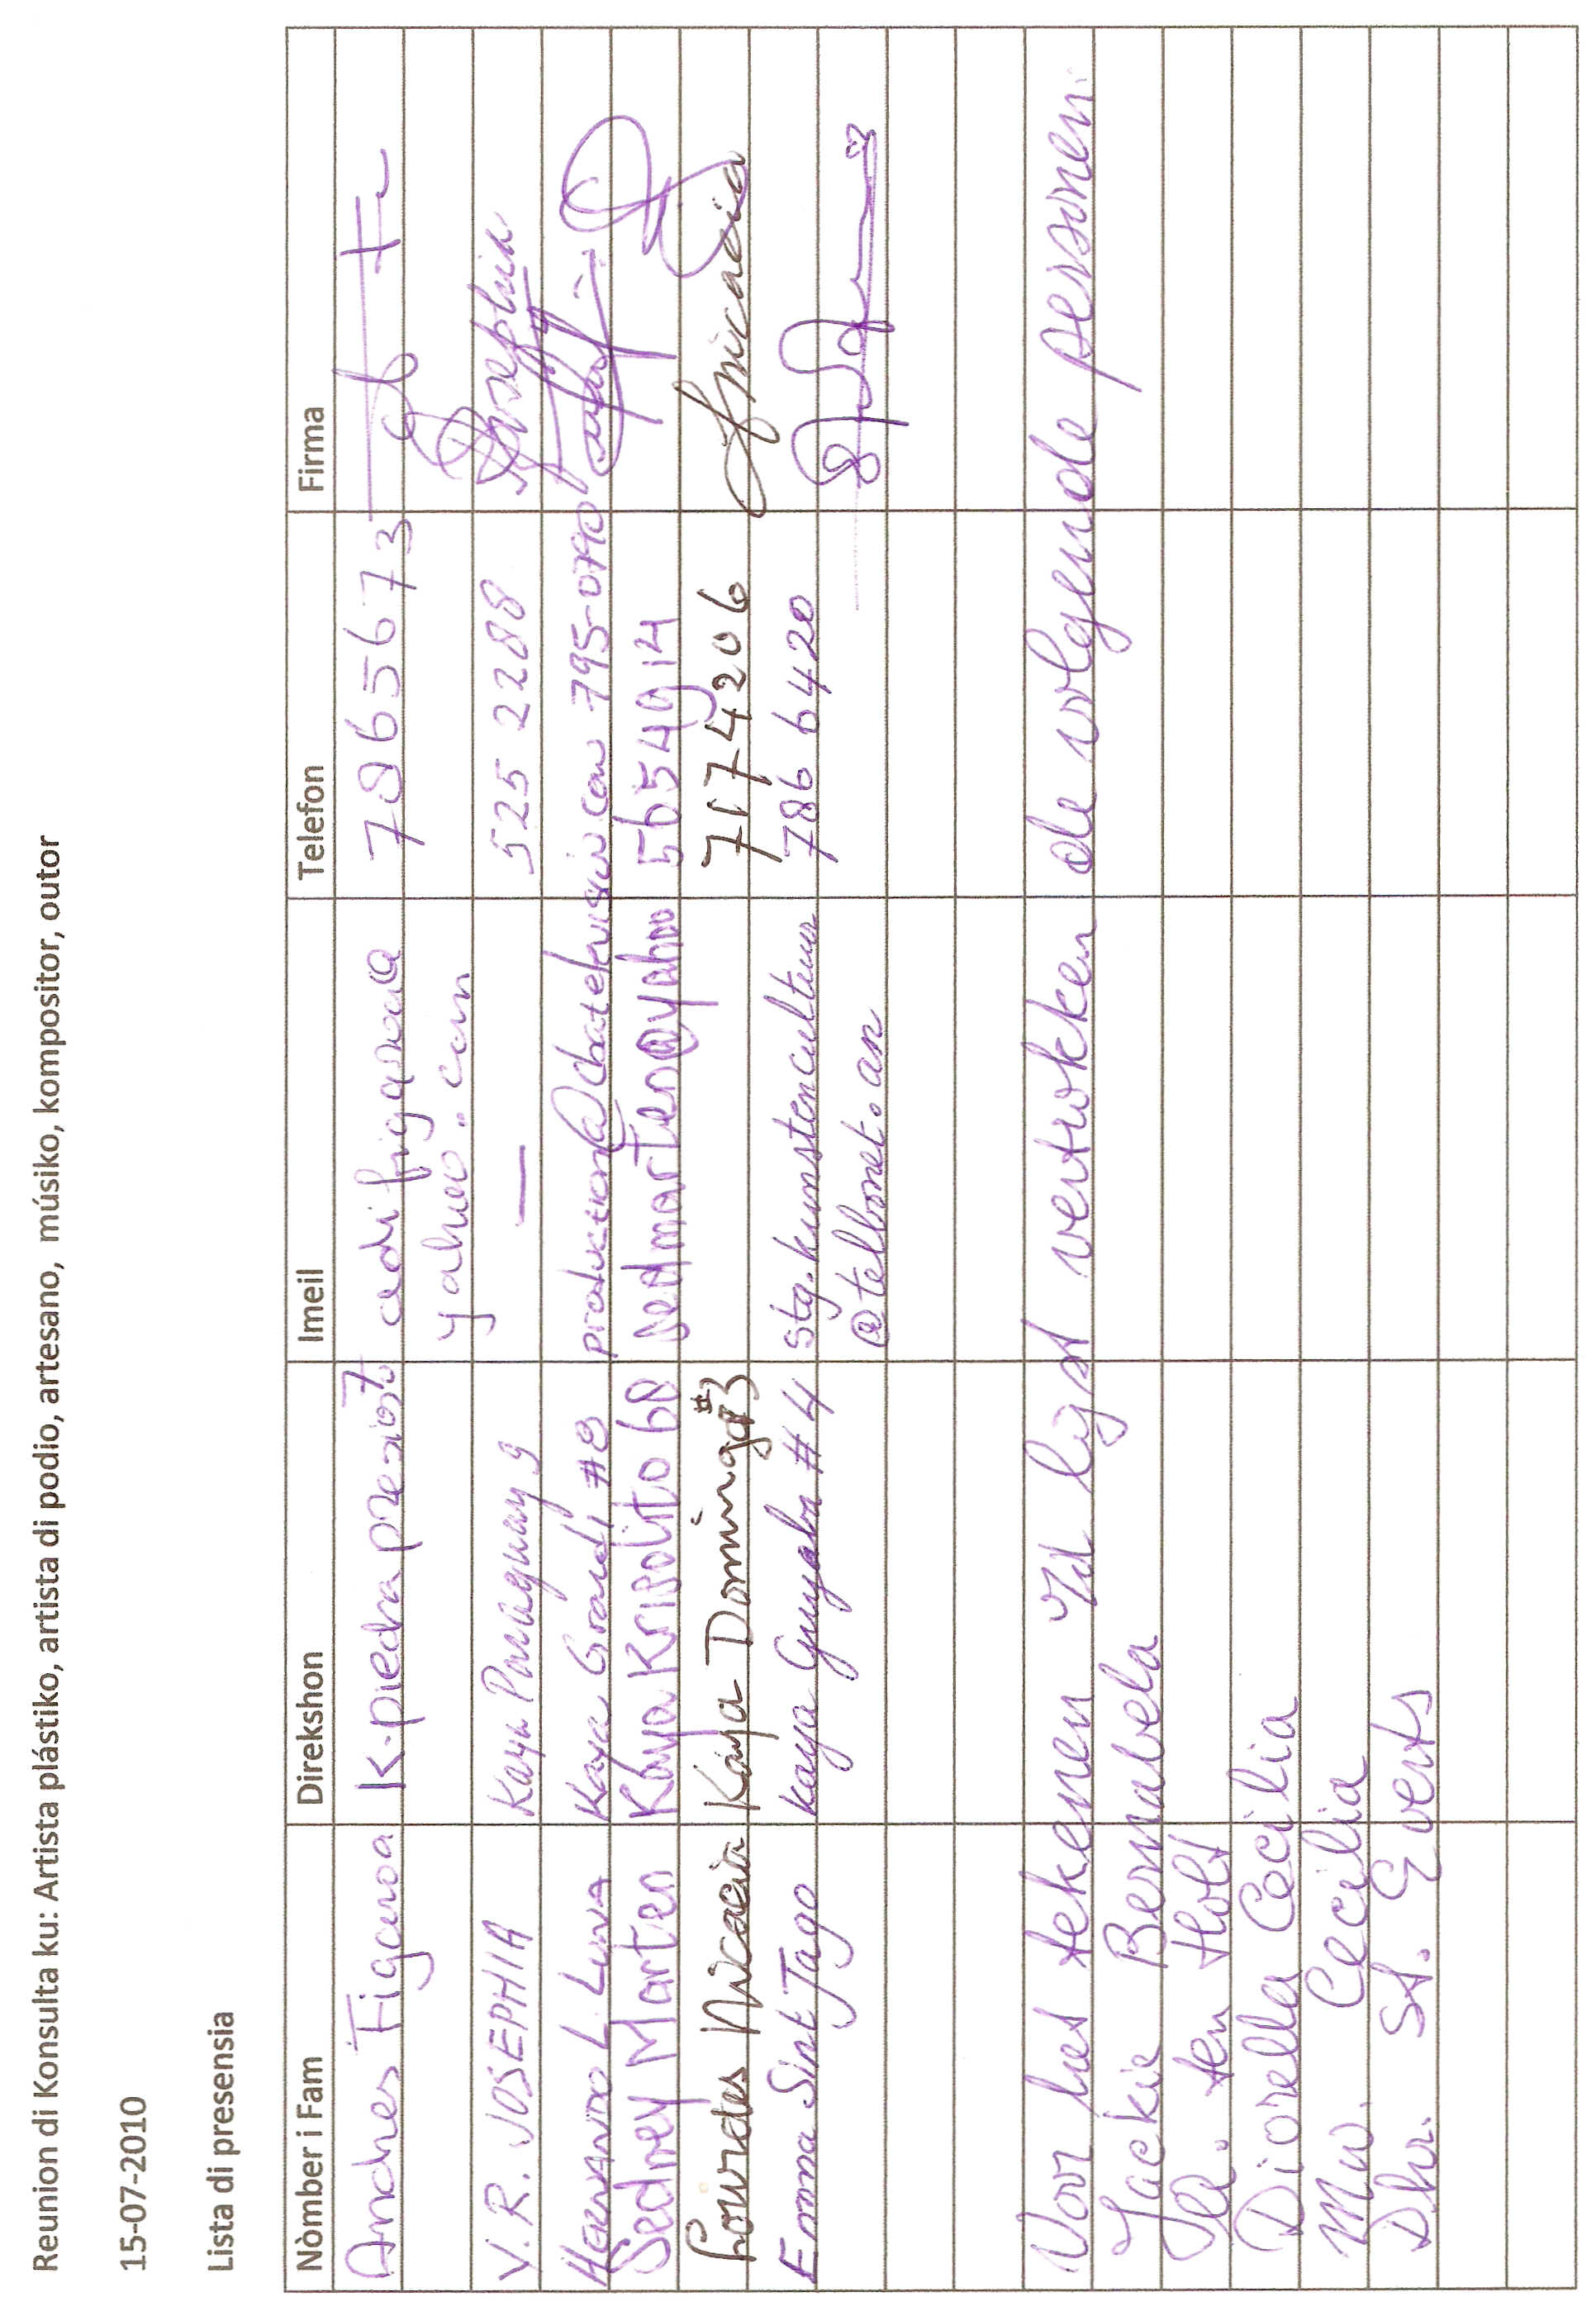 Reunion di Konsulta ku: Artista plástiko, artista di podio, artesano, músiko, kompositor, outor
15-07-2010
Lista di presensia
Nòmber i Fam Direkshon Imeil Telefon Firma
Andres Figaroa K-piedra presioso 7 adifigaroa 7865673
yahoo.com
V.R. JOSEPHIA Kaya Paraguay 9 — 525 2288 Josephia
HERNANDO L. LUNA Kaya Grandi #8 production@chatelevision.com 795-0790
Sedney Marten Kaya Krisolito 68 Sedmarten@yahoo 5654914
Lourdes Nicacia Kaya Dominga #3 7174206 Lnicacia
Emma Sint Jago kaya Guyaba #4 stg.kunstencultuur 786 6420
@telbonet.an
Voor het tekenen vd lijst vertrokken de volgende personen:
Jackie Bernabela
Hr. ten Holt
Diorella Cecilia
Mw. Cecilia
Dhr. St. Everts